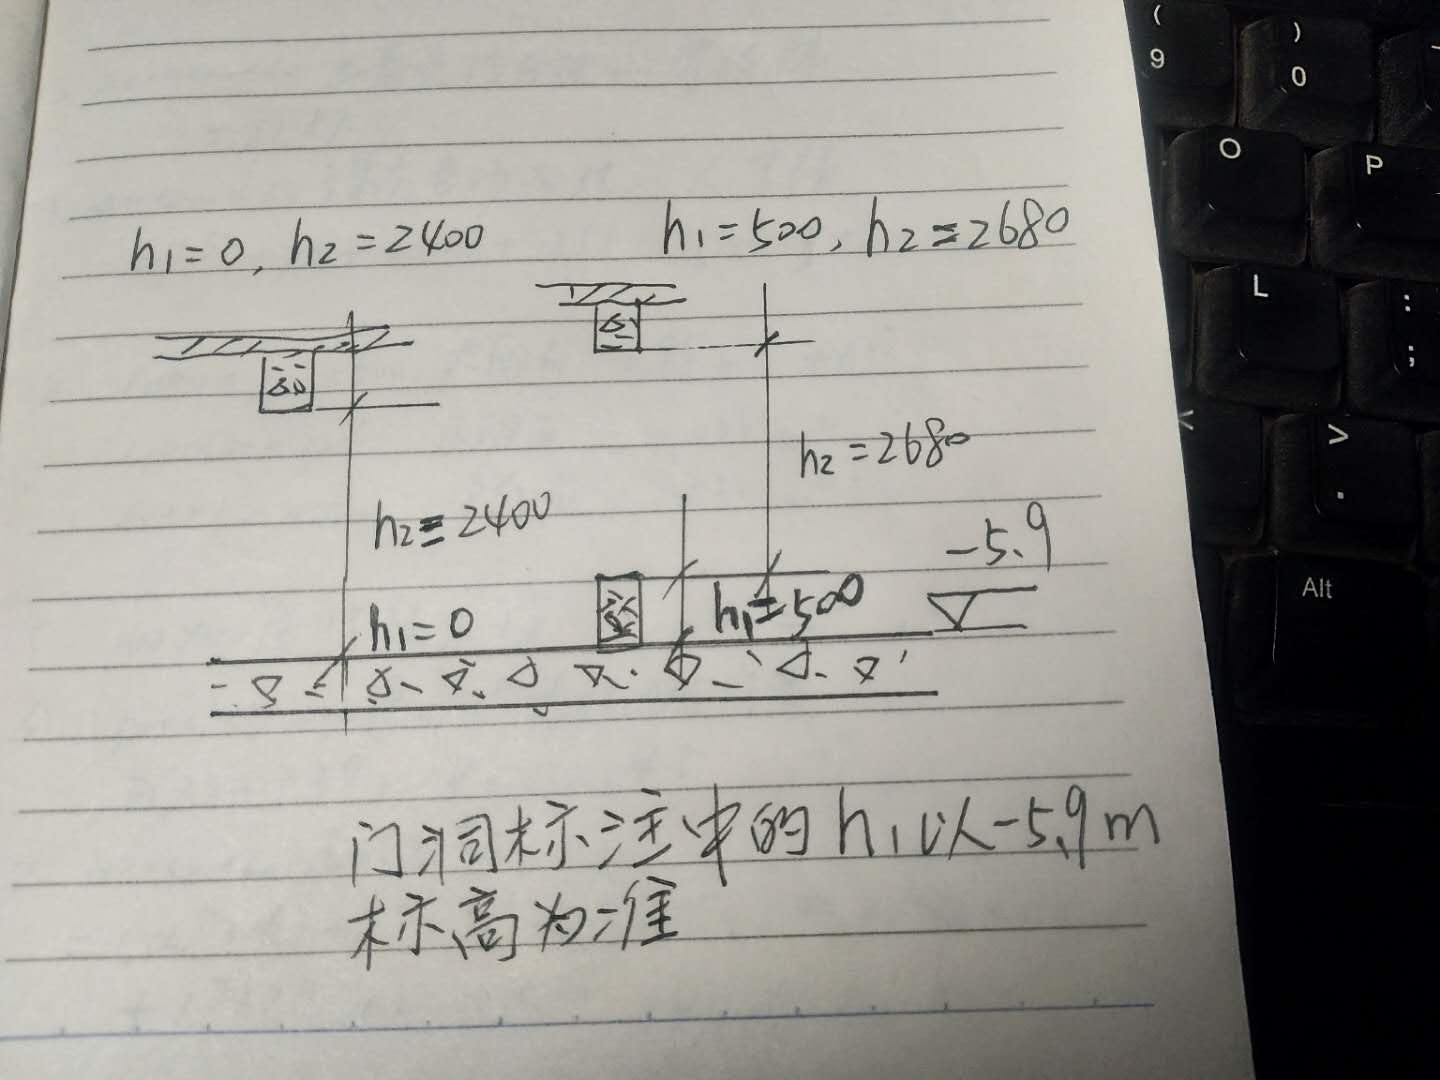 h₁=0, h₂=2400
h₁=500, h₂=2680
h₂=2680
h₂=2400
-5.9
h₁=0
h₁=500
门洞标注中的h₁以-5.9m
标高为准
(
9
)
0
O
P
L
:
;
<
>
.
Alt